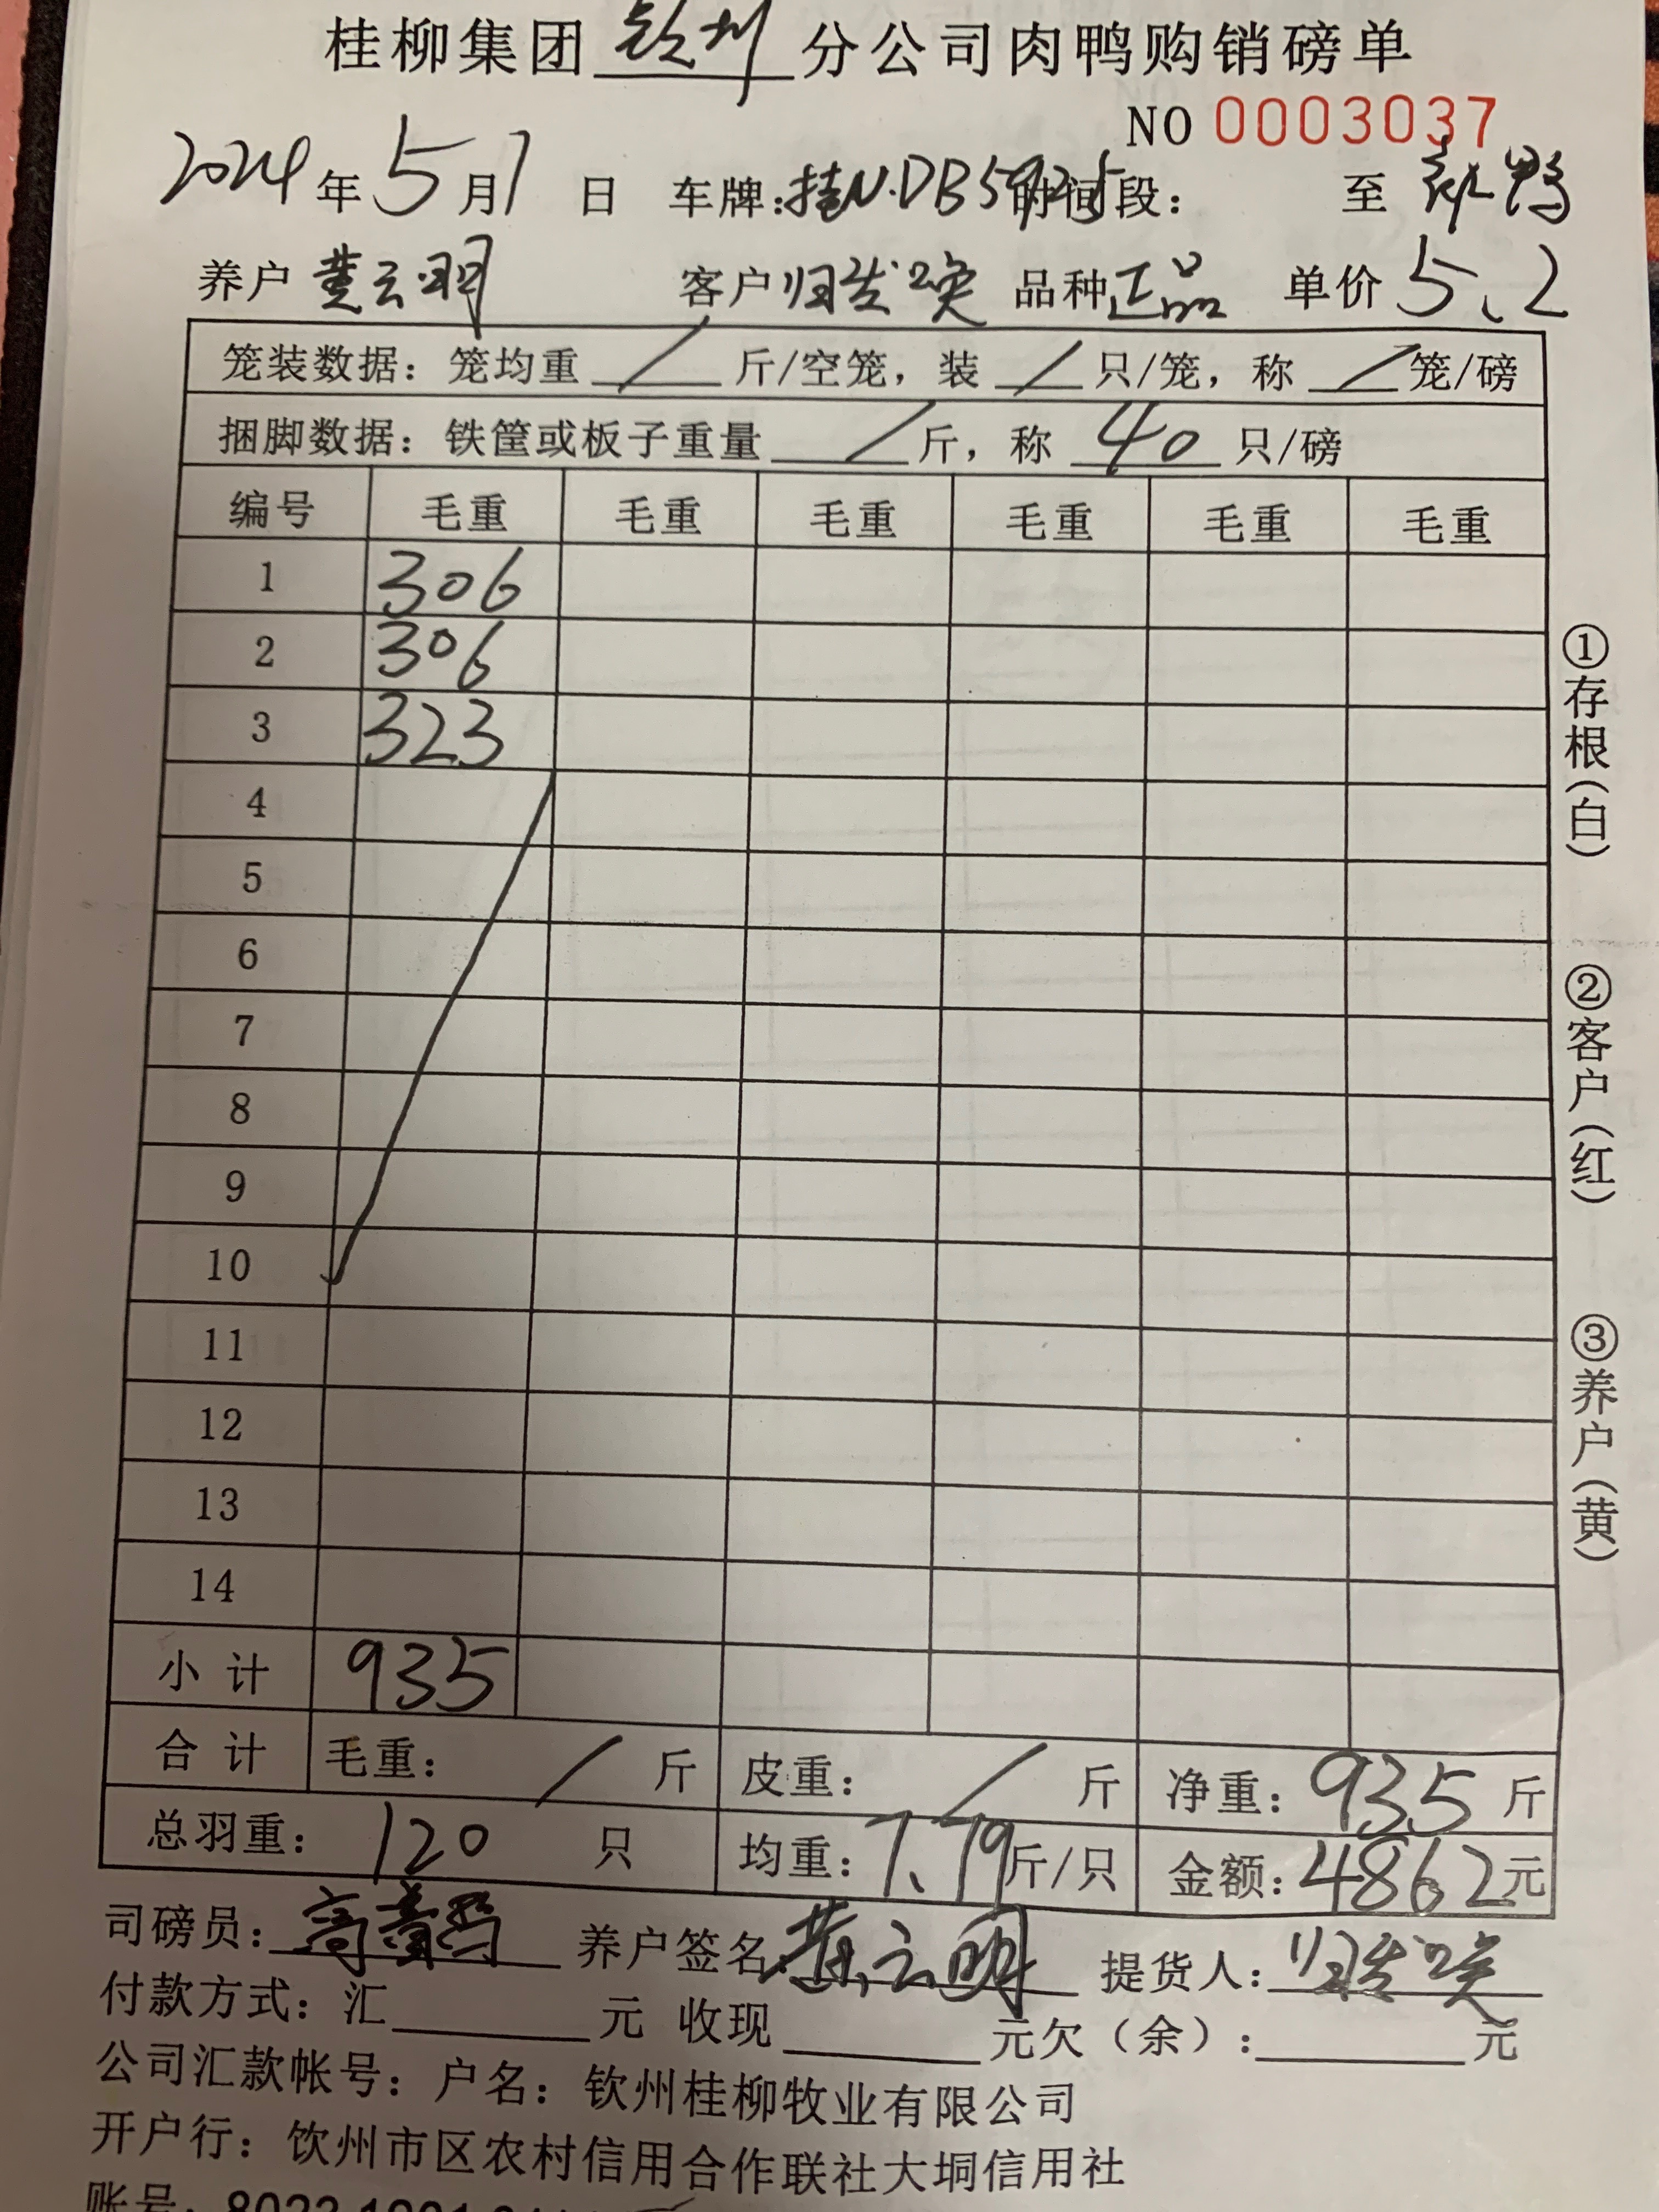 桂柳集团 钦州 分公司肉鸭购销磅单
NO 0003037
2024 年 5 月 1 日 车牌: 桂N·DB5925 时间段: 至 鸭
养户 黄云明 客户 归发 品种 正品 单价 5、2
笼装数据: 笼均重 / 斤/空笼, 装 / 只/笼, 称 / 笼/磅
捆脚数据: 铁筐或板子重量 / 斤, 称 40 只/磅
编号 毛重 毛重 毛重 毛重 毛重 毛重
1 306
2 306
3 323
4
5
6
7
8
9
10
11
12
13
14
小计 935
合计 毛重: / 斤 皮重: / 斤 净重: 935 斤
总羽重: 120 只 均重: 7、79 斤/只 金额: 4862 元
司磅员: 高 养户签名: 黄云明 提货人: 归发
付款方式: 汇 元 收现 元欠(余): 元
公司汇款帐号: 户名: 钦州桂柳牧业有限公司
开户行: 饮州市区农村信用合作联社大垌信用社
账号:
①存根(白)
②客户(红)
③养户(黄)